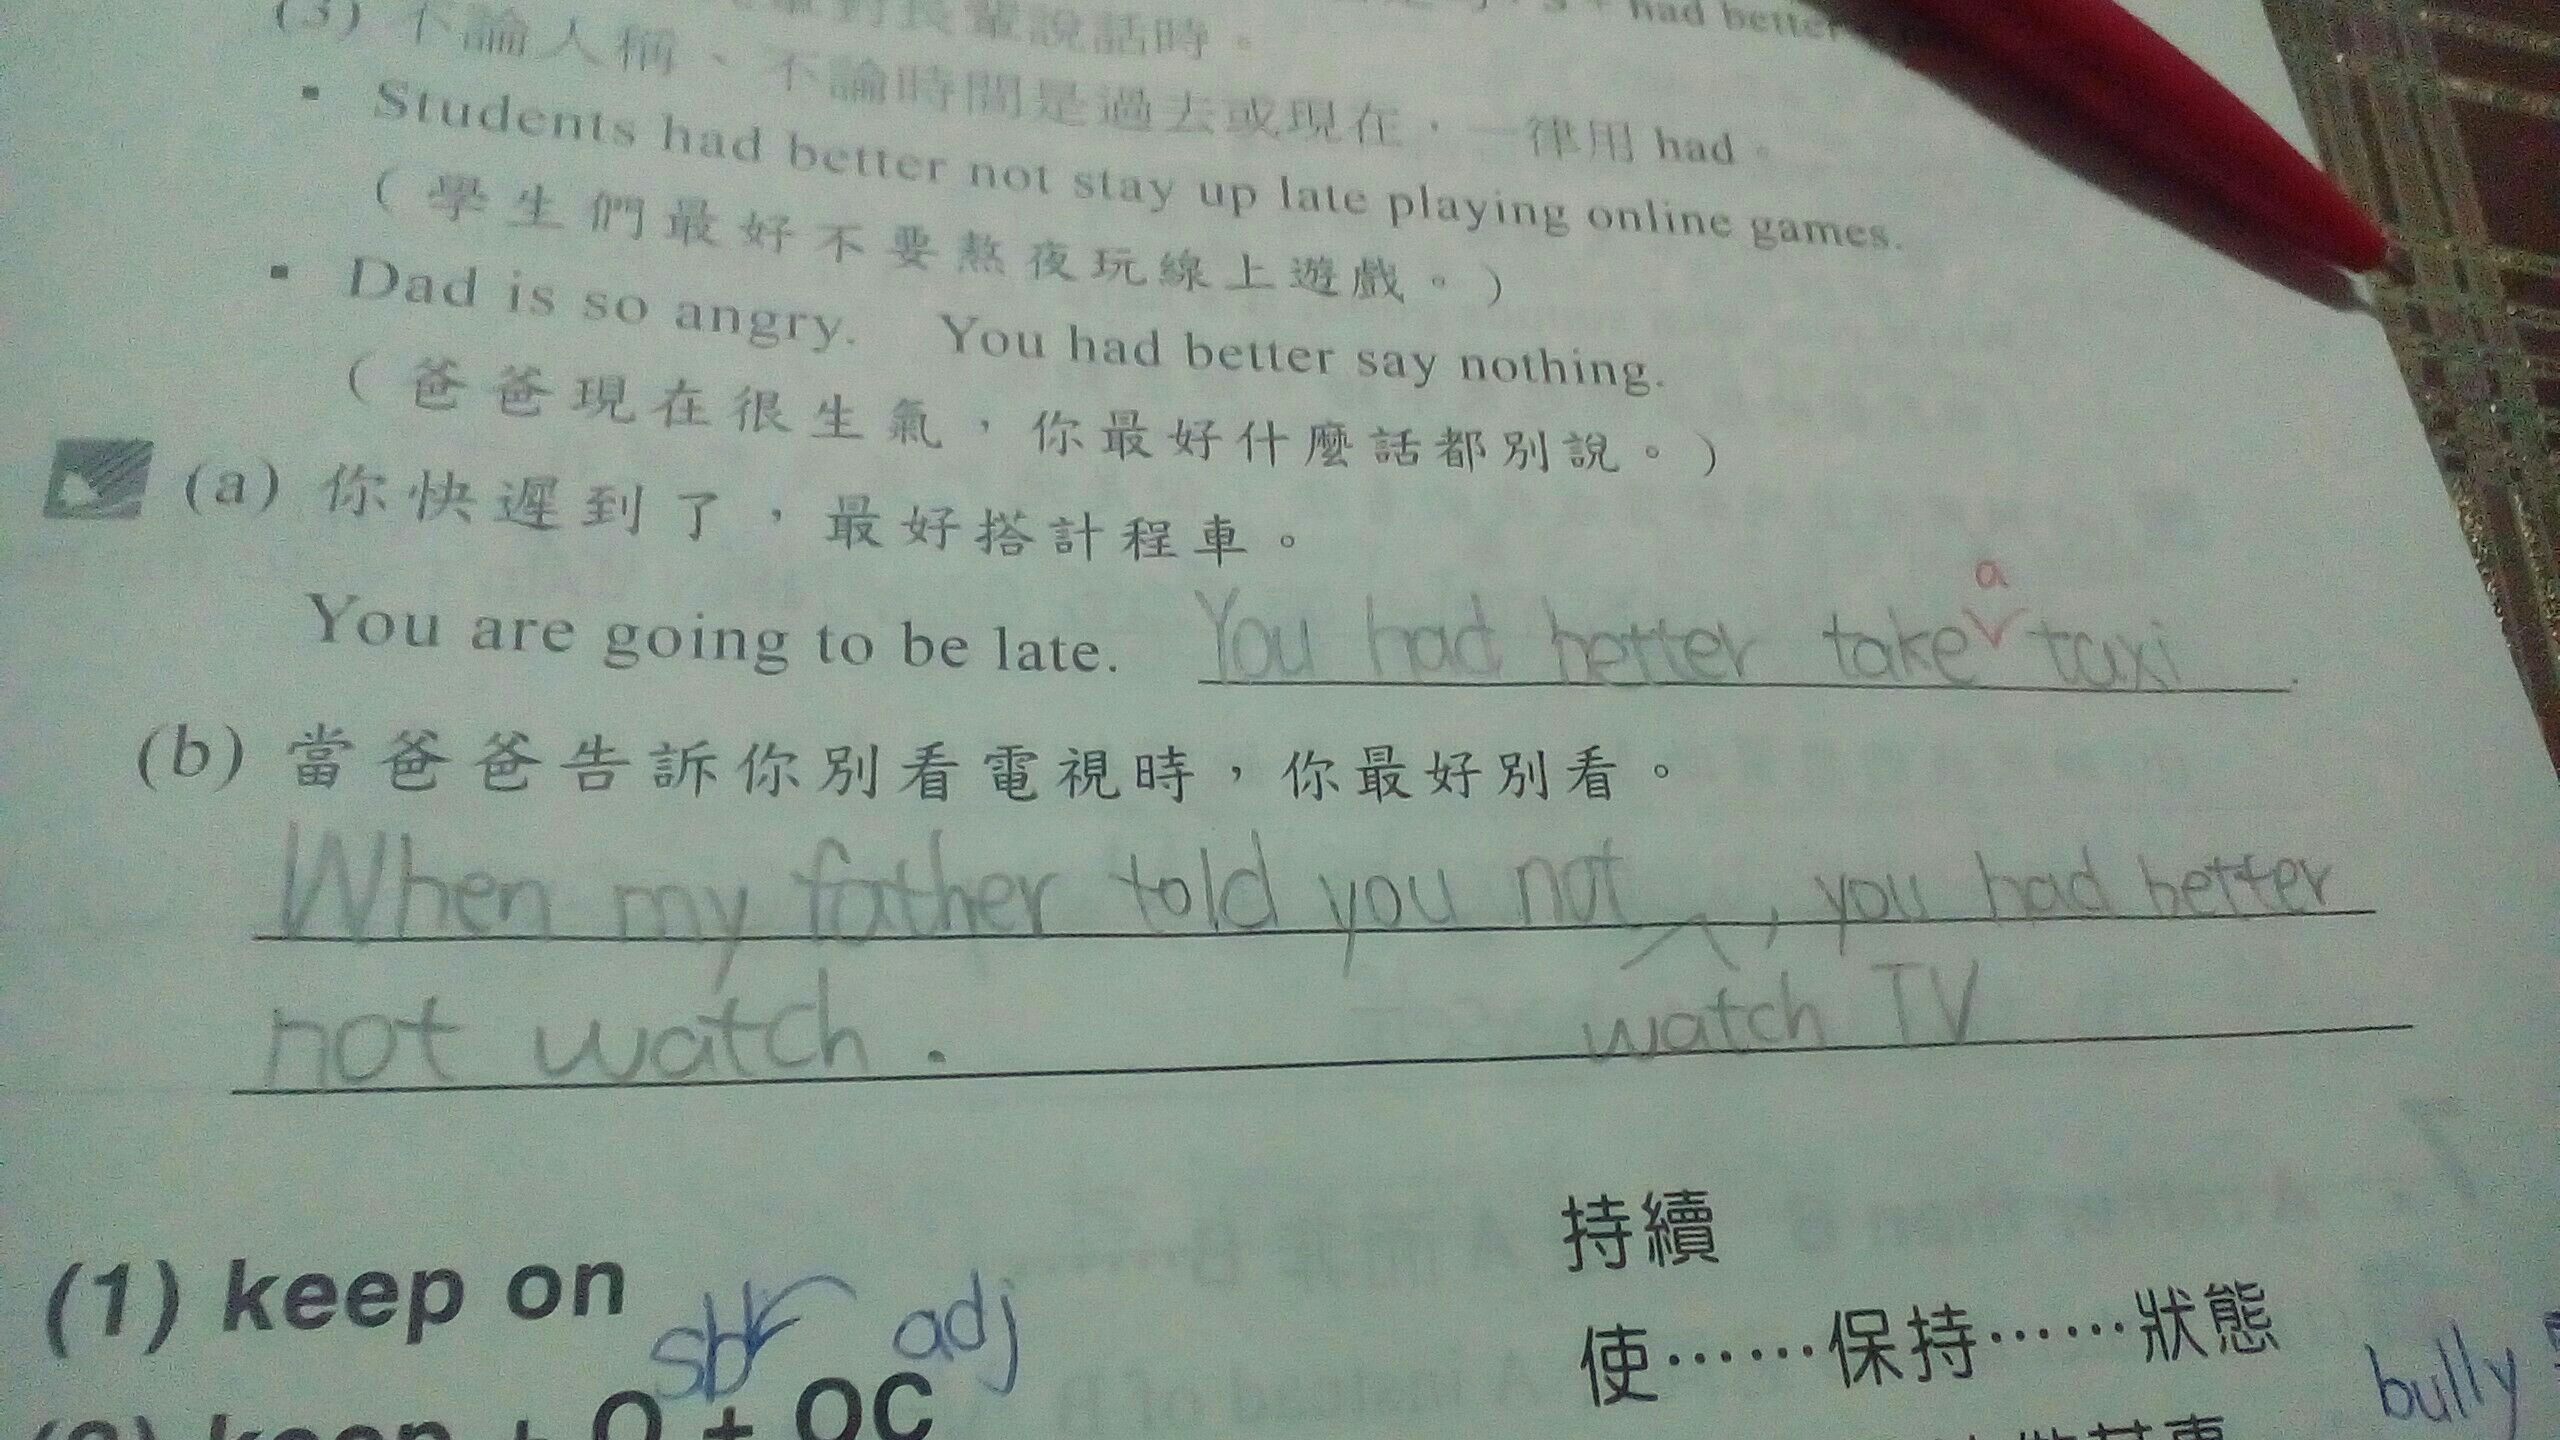 (3) 不論人稱、不論時間是過去或現在，一律用 had。
對長輩說話時。
had better
▪ Students had better not stay up late playing online games.
（學生們最好不要熬夜玩線上遊戲。）
▪ Dad is so angry. You had better say nothing.
（爸爸現在很生氣，你最好什麼話都別說。）
(a) 你快遲到了，最好搭計程車。
a
You are going to be late. You had better take taxi.
(b) 當爸爸告訴你別看電視時，你最好別看。
When my father told you not , you had better
not watch. watch TV
(1) keep on 持續
adj
使……保持……狀態
bully
keep + O + OC